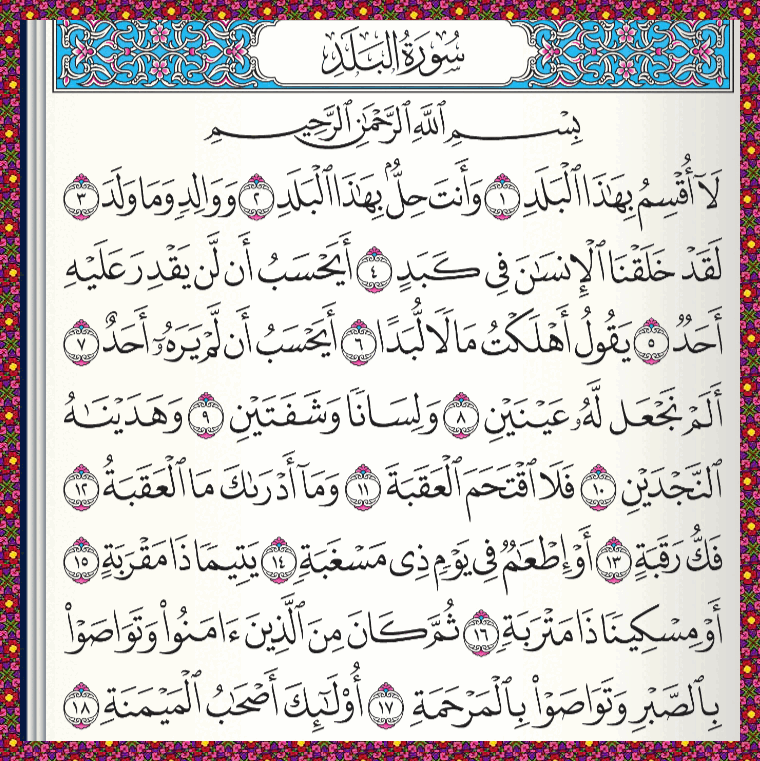 سُورَةُ الْبَلَدِ
بِسْمِ ٱللَّهِ ٱلرَّحْمَٰنِ ٱلرَّحِيمِ
لَآ أُقْسِمُ بِهَٰذَا ٱلْبَلَدِ ١ وَأَنتَ حِلٌّۢ بِهَٰذَا ٱلْبَلَدِ ٢ وَوَالِدٍ وَمَا وَلَدَ ٣
لَقَدْ خَلَقْنَا ٱلْإِنسَٰنَ فِى كَبَدٍ ٤ أَيَحْسَبُ أَن لَّن يَقْدِرَ عَلَيْهِ
أَحَدٌ ٥ يَقُولُ أَهْلَكْتُ مَالًا لُّبَدًا ٦ أَيَحْسَبُ أَن لَّمْ يَرَهُۥٓ أَحَدٌ ٧
أَلَمْ نَجْعَل لَّهُۥ عَيْنَيْنِ ٨ وَلِسَانًا وَشَفَتَيْنِ ٩ وَهَدَيْنَٰهُ
ٱلنَّجْدَيْنِ ١٠ فَلَا ٱقْتَحَمَ ٱلْعَقَبَةَ ١١ وَمَآ أَدْرَىٰكَ مَا ٱلْعَقَبَةُ ١٢
فَكُّ رَقَبَةٍ ١٣ أَوْ إِطْعَٰمٌ فِى يَوْمٍ ذِى مَسْغَبَةٍ ١٤ يَتِيمًا ذَا مَقْرَبَةٍ ١٥
أَوْ مِسْكِينًا ذَا مَتْرَبَةٍ ١٦ ثُمَّ كَانَ مِنَ ٱلَّذِينَ ءَامَنُوا۟ وَتَوَاصَوْا۟
بِٱلصَّبْرِ وَتَوَاصَوْا۟ بِٱلْمَرْحَمَةِ ١٧ أُو۟لَٰٓئِكَ أَصْحَٰبُ ٱلْمَيْمَنَةِ ١٨